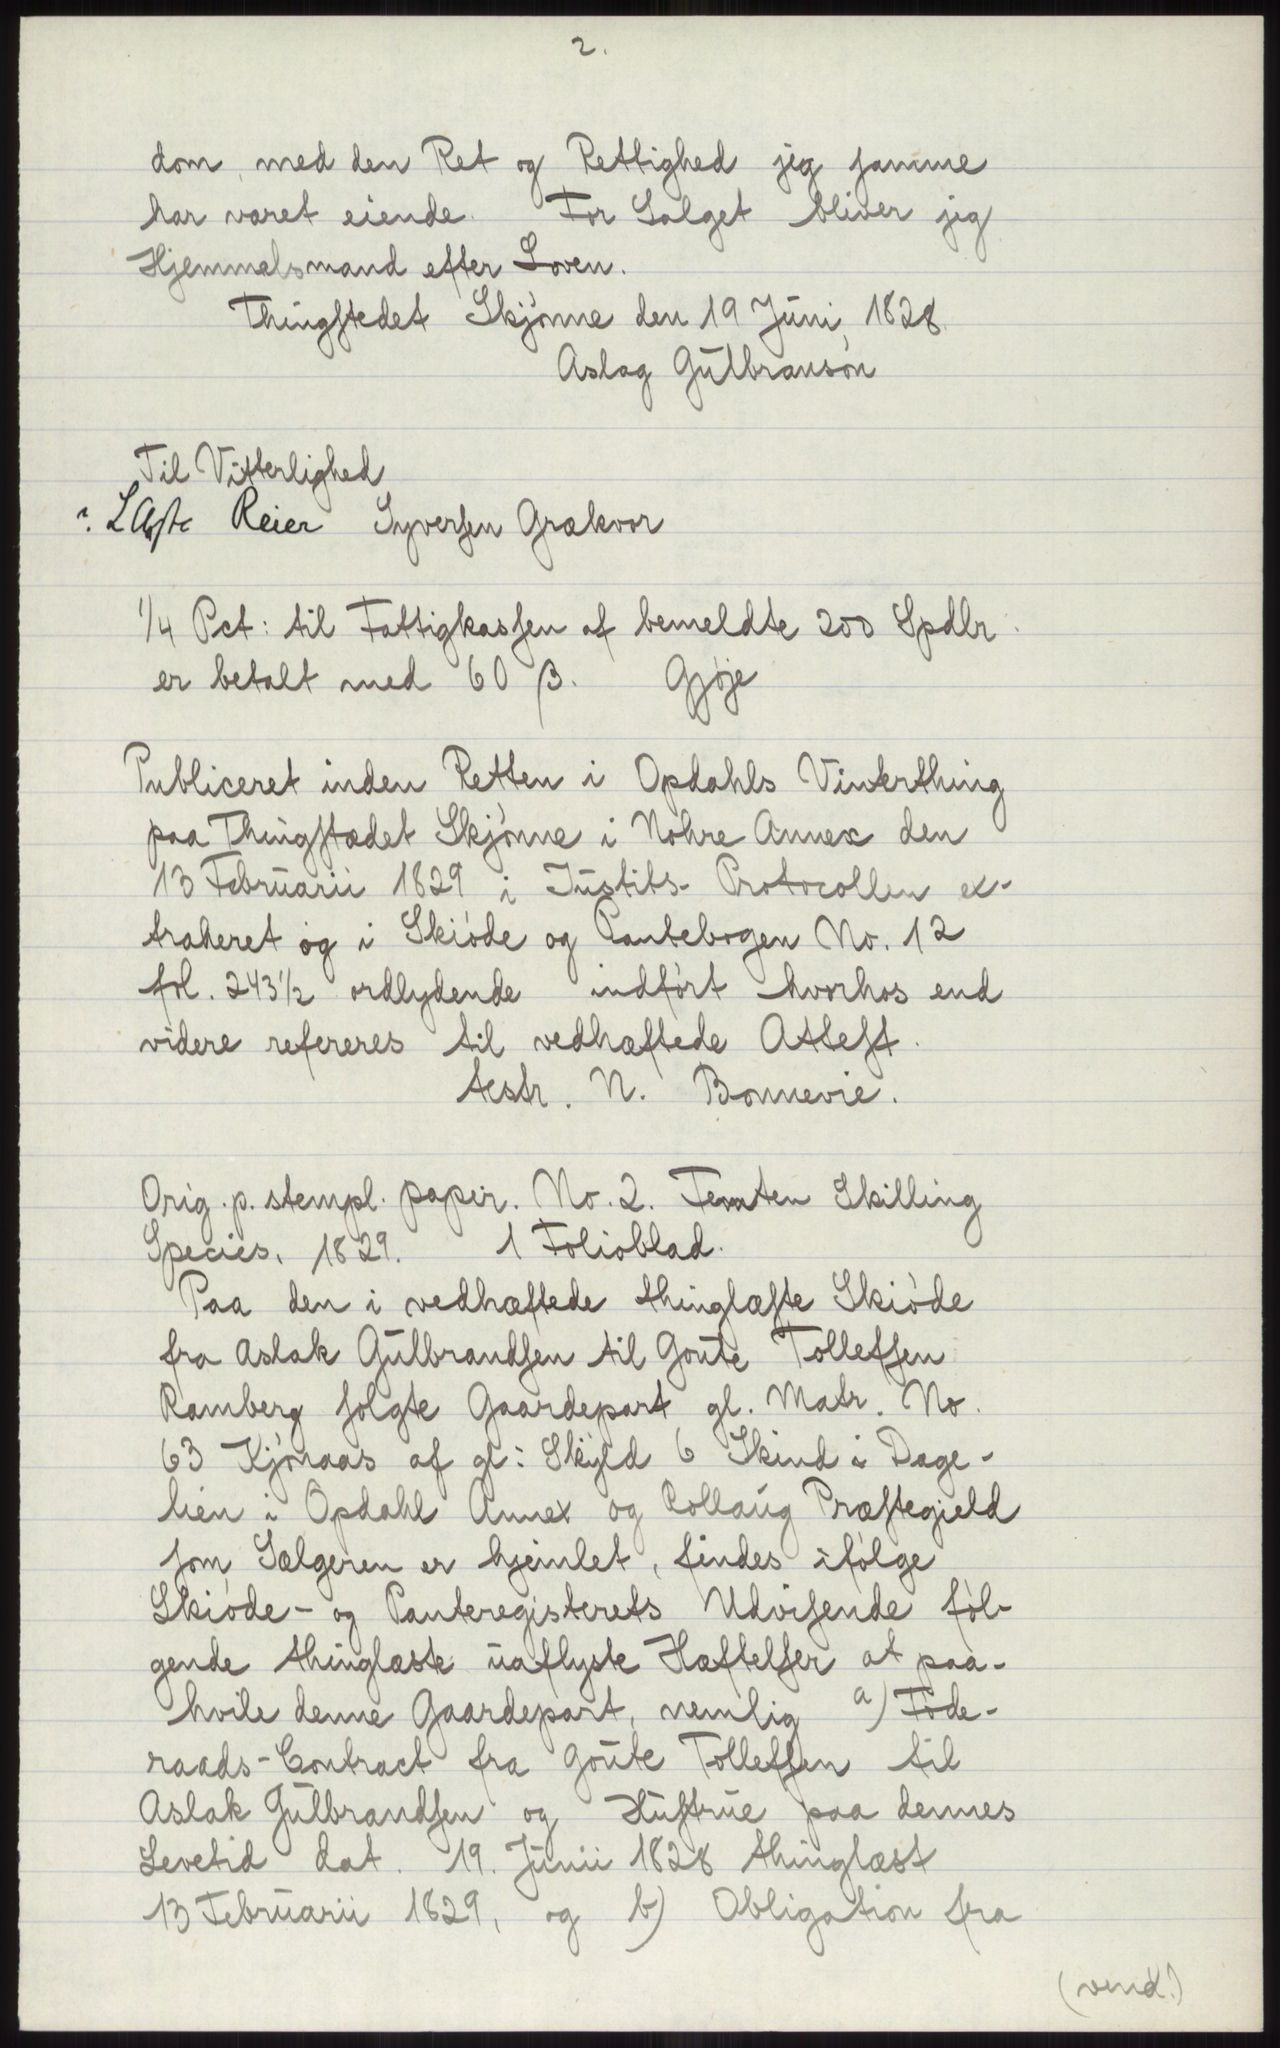 2.
dom, med den Ret og Rettighed jeg samme
har været eiende. For Salget bliver jeg
Hjemmelsmand efter Loven.
Thingstedet Skjönne den 19 Juni 1828.
Aslag Gulbransön
Til Vitterlighed
Reier Syversen Grækvor
1/4 Pct: til Fattigkassen af bemeldte 200 Spdlr.
er betalt med 60 β. Gjøje
Publiceret inden Retten i Opdahls Vinterthing
paa Thingstædet Skjönne i Nohre Annex den
13 Februarii 1829 i Justits-Protocollen ex-
traheret og i Skiöde og Pantebogen No. 12
fol. 243 1/2 ordlydende indfört hvorhos end
videre refereres til vedhæftede Attest.
testr. N. Bonnevie.
Orig. p. stempl. papir. No. 2. Femten Skilling
Species, 1829. 1 Folioblad.
Paa den i vedhæftede thinglæste Skiöde
fra Aslak Gulbrandsen til Goute Tollefsen
Ramberg solgte Gaardepart gl. Matr. No.
63 Kjönaas af gl: Skyld 6 Skind i Dage-
lien i Opdahl Annex og Rollaug Præstegield
som Sælgeren er hjemlet, findes ifölge
Skiöde- og Panteregisterets Udvisende föl-
gende thinglæste uaflyste Hæftelser at paa-
hvile denne Gaardepart, nemlig a) Föde-
raads-Contract fra Goute Tollefsen til
Aslak Gulbrandsen og Hustrue paa dennes
Levetid dat. 19. Junii 1828 thinglæst
13 Februarii 1829, og b) Obligation fra
(vend.)